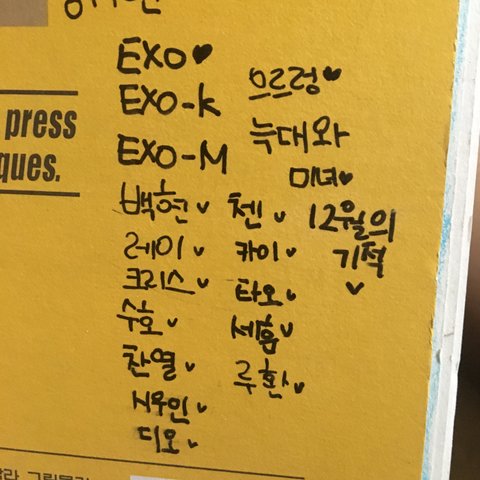 press
ques.
EXO♥
EXO-K
EXO-M
백현♥
레이♥
크리스♥
수호♥
찬열♥
시우민♥
디오♥
첸♥
카이♥
타오♥
세훈♥
루환♥
으르렁♥
늑대와
미녀♥
12월의
기적
♥